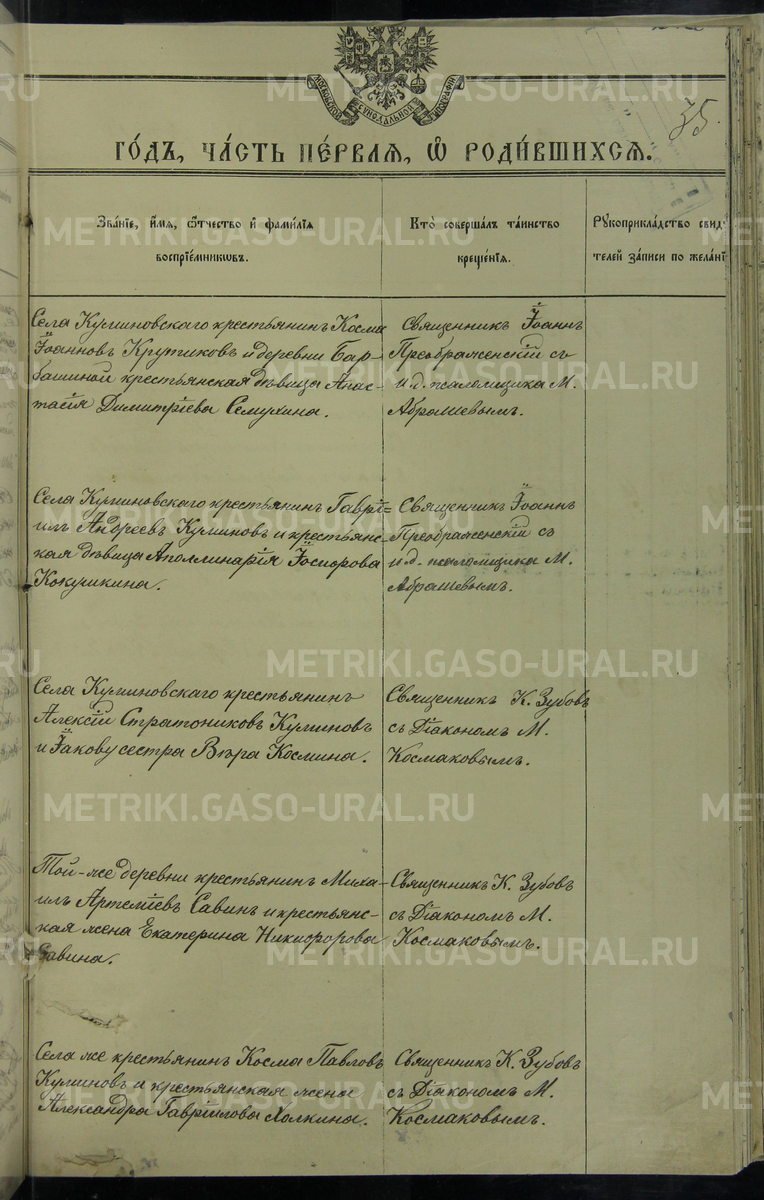 35.
МОСКОВСКОЙ СѴНОДАЛЬНОЙ ТИПОГРАФІИ
ГО́ДЪ, ЧА́СТЬ ПЕ́РВАЯ, Ѡ РОДИ́ВШИХСЯ.
Зва́нїе, и́мя, ѻ҆́тчество и҆ фами́лїя
воспрїе́мникѡвъ.
Кто̀ соверша́лъ та́инство
креще́нїя.
Рꙋкоприкла́дство свид
телей за́писи по жела́нї
Села Куминовскаго крестьянинъ Косма
Іоанновъ Крутиковъ и деревни Бар-
башиной крестьянская дѣвица Анас-
тасія Димитріева Семухина.
Священникъ Іоаннъ
Преображенскій съ
и.д. псаломщика М.
Абрашевымъ.
Села Куминовскаго крестьянинъ Гаврі=
илъ Андреевъ Куминовъ и крестьянс-
кая дѣвица Аполлинарія Іосифова
Кокушкина.
Священникъ Іоаннъ
Преображенскій съ
и.д. псаломщика М.
Абрашевымъ.
Села Куминовскаго крестьянинъ
Алексій Стратониковъ Куминовъ
и Іакову сестра Вѣра Космина.
Священникъ К. Зубовъ
съ Діакономъ М.
Космаковымъ.
Той-же деревни крестьянинъ Миха-
илъ Артеміевъ Савинъ и крестьянс-
кая жена Екатерина Никифорова
Савина.
Священникъ К. Зубовъ
съ Діакономъ М.
Космаковымъ.
Села же крестьянинъ Косма Павловъ
Куминовъ и крестьянская жена
Александра Гавріилова Холкина.
Священникъ К. Зубовъ
съ Діакономъ М.
Космаковымъ.
METRIKI.GASO-URAL.RU